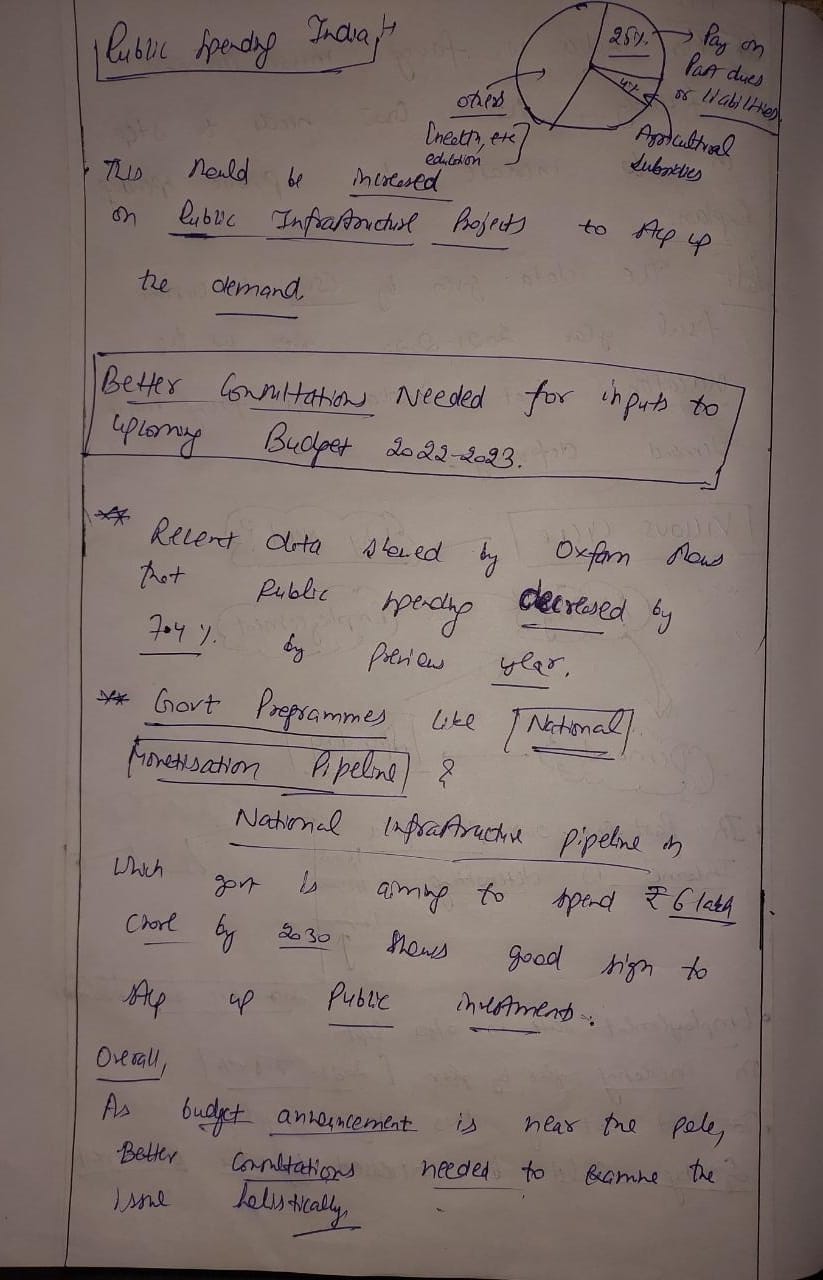 Public Spending India,
25%
→ Pay on
Past dues
or liabilities.
4%
Agricultural
Subsidies
others
[health, etc]
education
This should be increased
on Public Infrastructure Projects to step up
the demand.
Better Consultations Needed for inputs to
upcoming Budget 2022-2023.
** Recent data shared by Oxfam shows
that Public spending decreased by
7.4 %. by previous year.
** Govt Programmes like [National]
Monetisation Pipeline &
National Infrastructure pipeline in
which govt is aiming to spend ₹ 6 lakh
crore by 2030 shows good sign to
step up Public investments.
Overall,
As budget announcement is near the pole,
Better consultations needed to examine the
issue holistically.